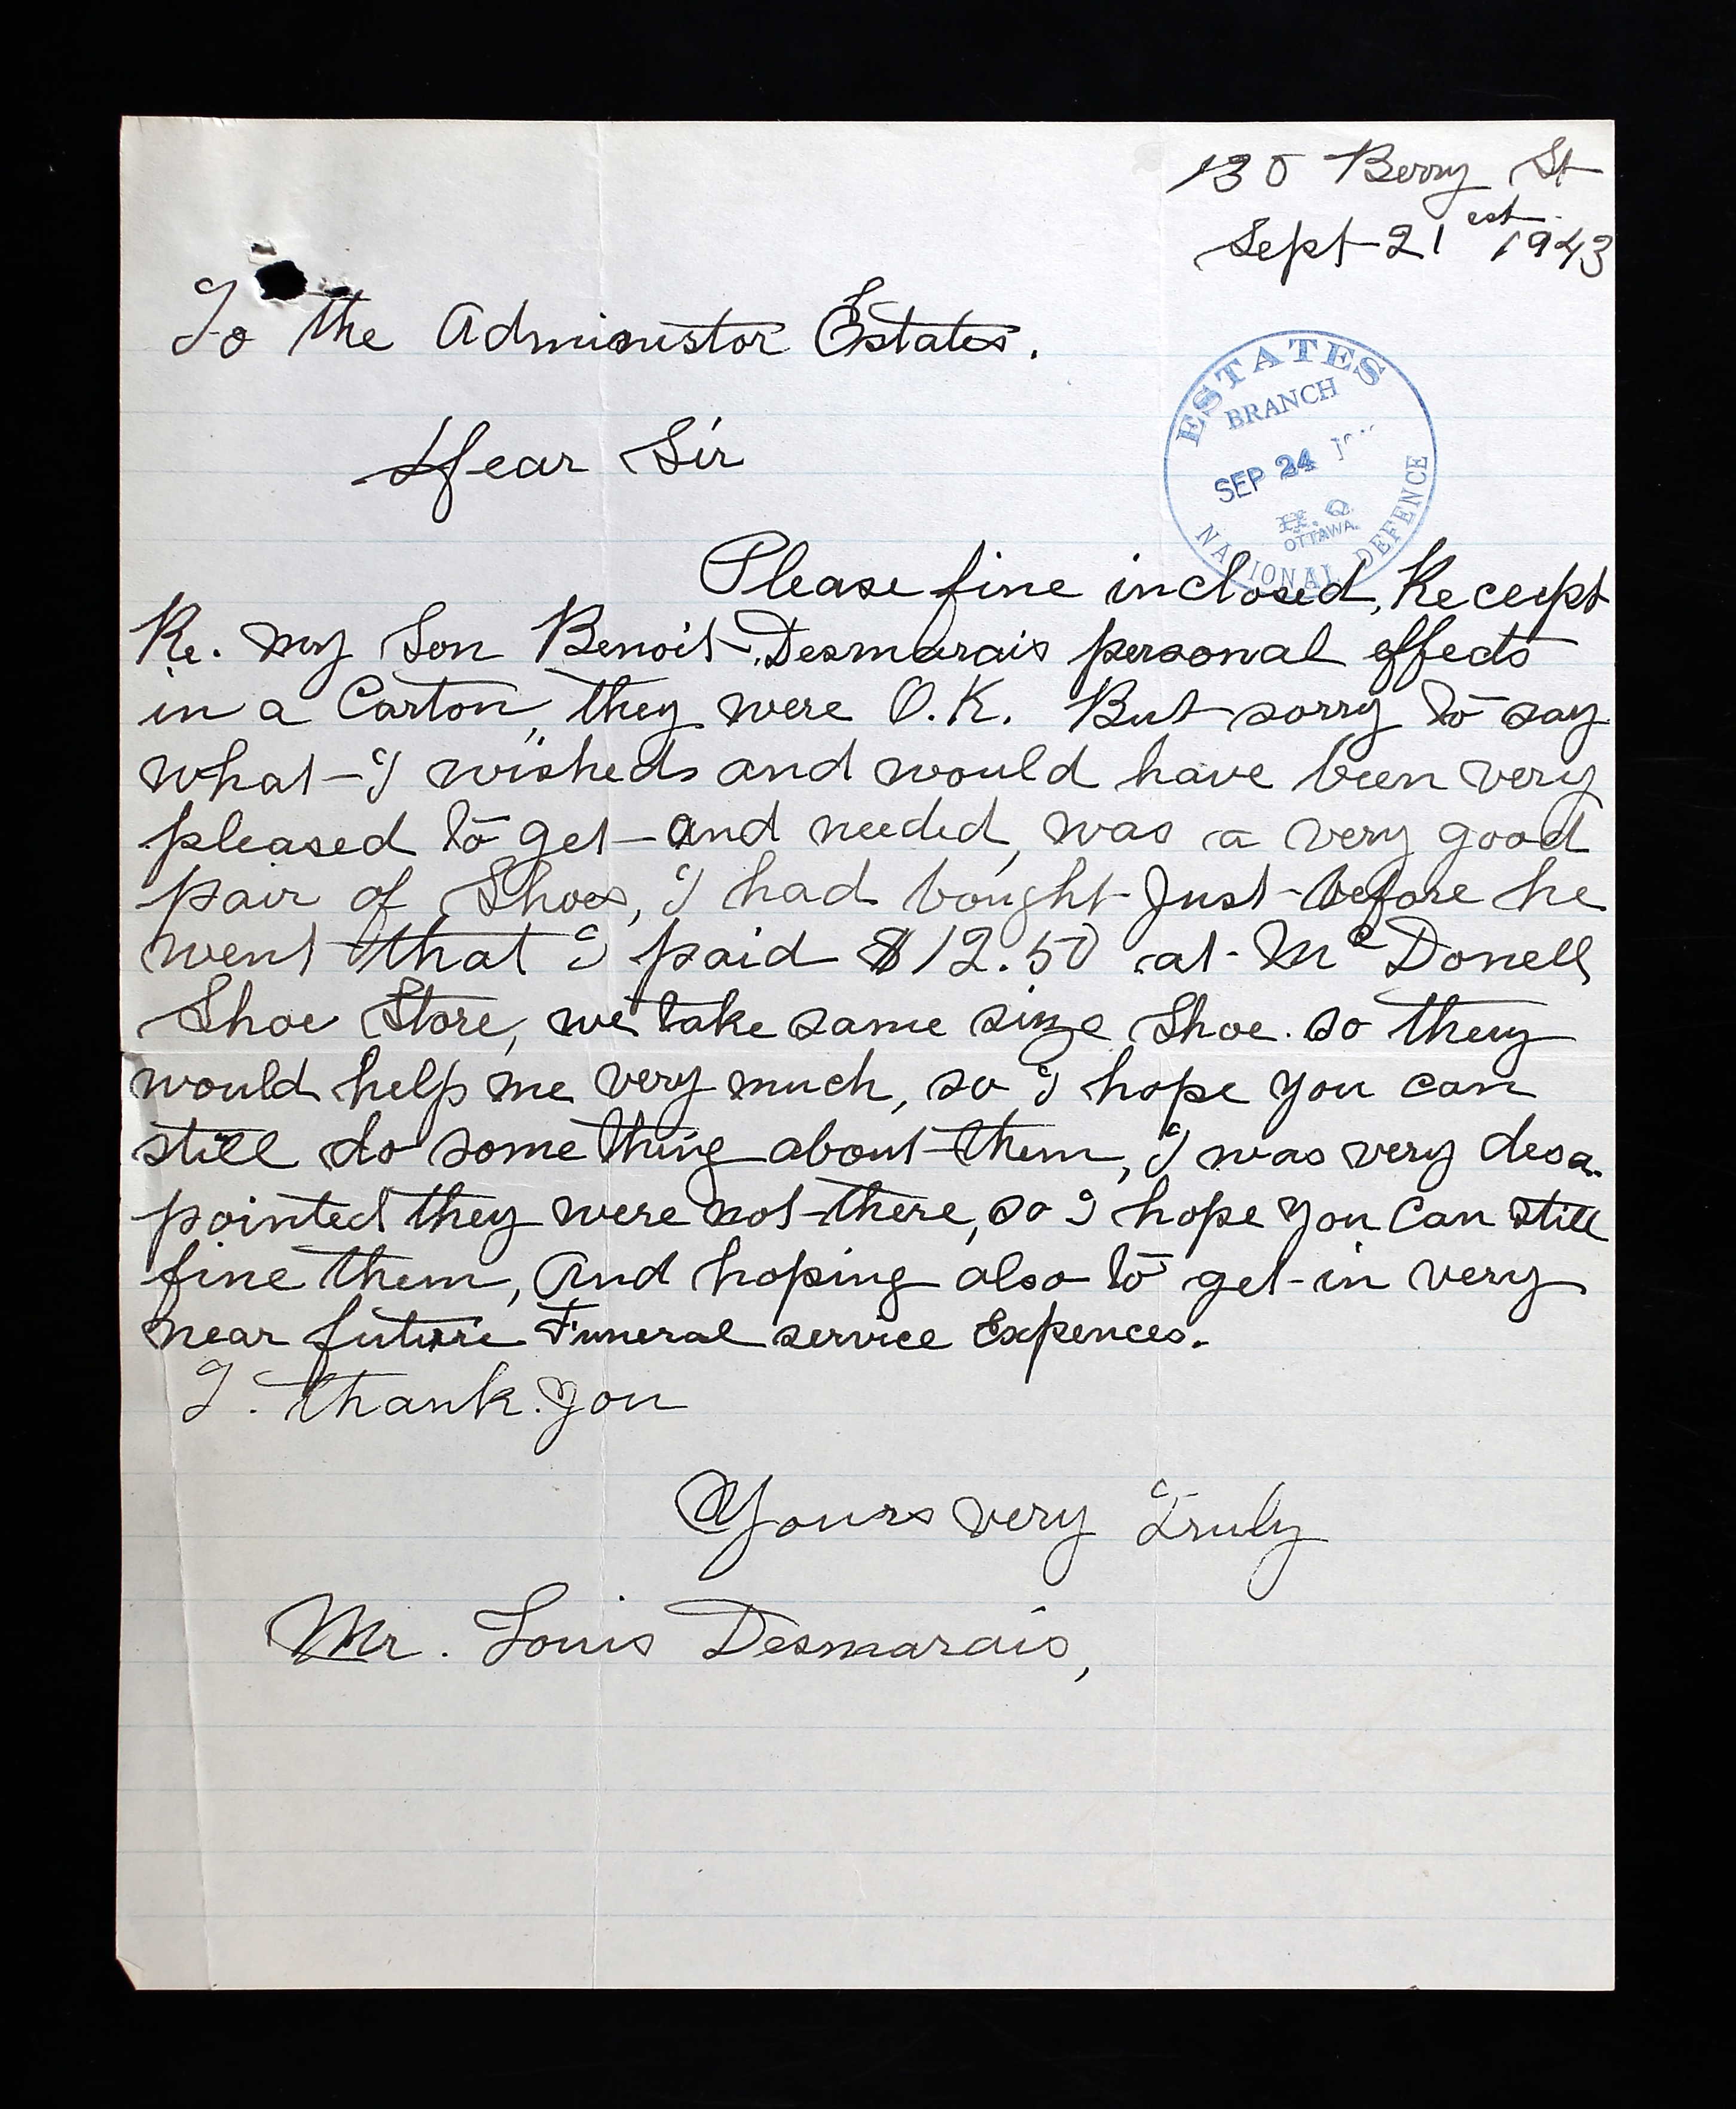 130 Berry St
Sept 21 est 1943
To the Administor Estates.
Dear Sir
ESTATES
BRANCH
SEP 24
H.Q.
OTTAWA.
NATIONAL DEFENCE
Please fine inclosed, Receipt
Re. my Son Benoit Desmarais personal effects
in a Carton, they were O.K. But sorry to say
what I wisheds and would have been very
pleased to get and needed, was a very good
pair of Shoes, I had bought Just before he
went that I paid $12.50 at McDonell
Shoe Store, we take same size Shoe. so they
would help me very much, so I hope you can
still do some thing about them, I was very desa-
pointed they were not there, so I hope you can still
fine them, And hoping also to get in very
near future Funeral service Expences.
I. thank. you
Yours very Truly
Mr. Louis Desmarais,